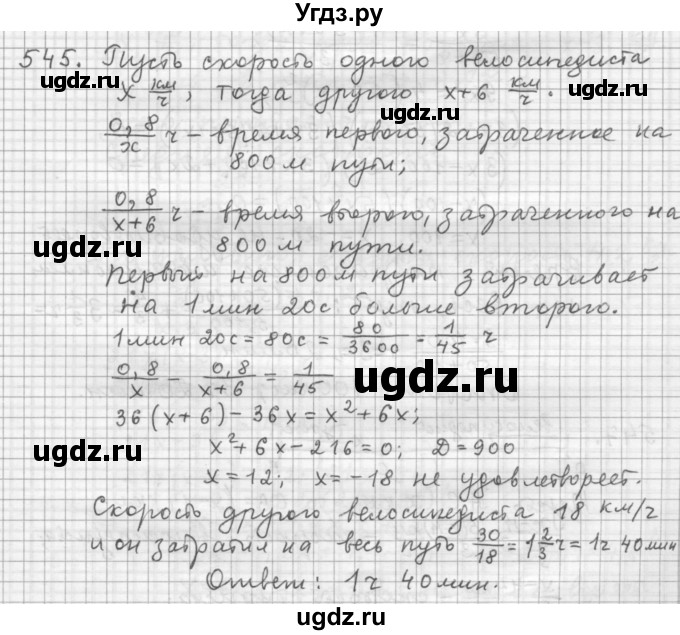 Угдз.ру
545. Пусть скорость одного велосипедиста
ugdz.ru ugdz.ru
x км/ч, тогда другого x+6 км/ч.
0,8/x ч – время первого, затраченное на
800 м пути;
ugdz.ru
0,8/x+6 ч – время второго, затраченного на
ugdz.ru 800 м пути.
Первый на 800 м пути затрачивает
на 1 мин 20 с больше второго.
1 мин 20 с = 80 с = 80/3600 = 1/45 ч
0,8/x – 0,8/x+6 = 1/45
ugdz.ru
36(x+6) – 36x = x²+6x;
ugdz.ru x²+6x–216=0; D=900
x=12; x=–18 не удовлетворяет.
Скорость другого велосипедиста 18 км/ч
ugdz.ru
и он затратил на весь путь 30/18 = 1 2/3 ч = 1ч 40мин
Ответ: 1ч 40мин.
ugdz.ru